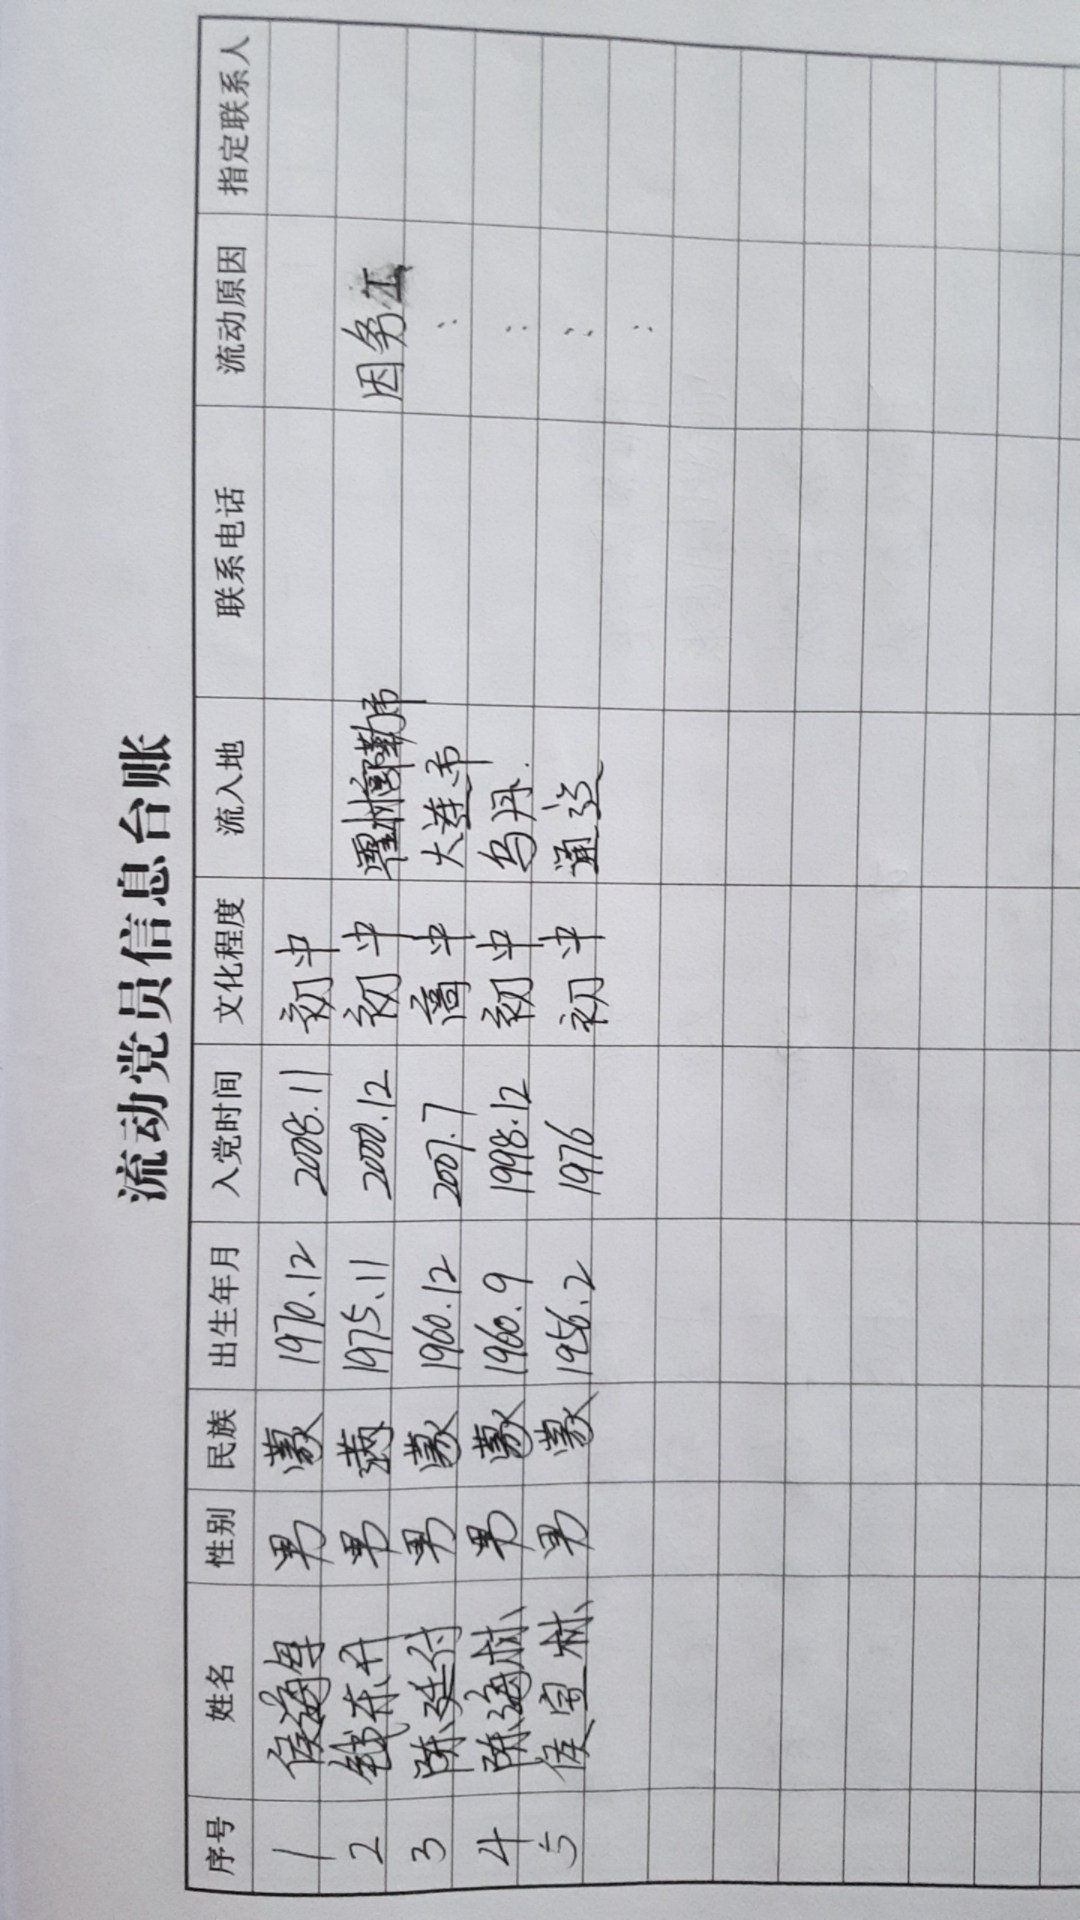 流动党员信息台账
序号 姓名 性别 民族 出生年月 入党时间 文化程度 流入地 联系电话 流动原因 指定联系人
1 侯海军 男 蒙 1970.12 2008.11 初中
2 钱东升 男 满 1975.11 2000.12 初中 霍林郭勒市 因务工
3 陈廷付 男 蒙 1960.12 2007.7 高中 大连市 :
4 陈海林 男 蒙 1960.9 1998.12 初中 乌丹. :
5 侯宝林 男 蒙 1956.2 1976 初中 通辽 :
: